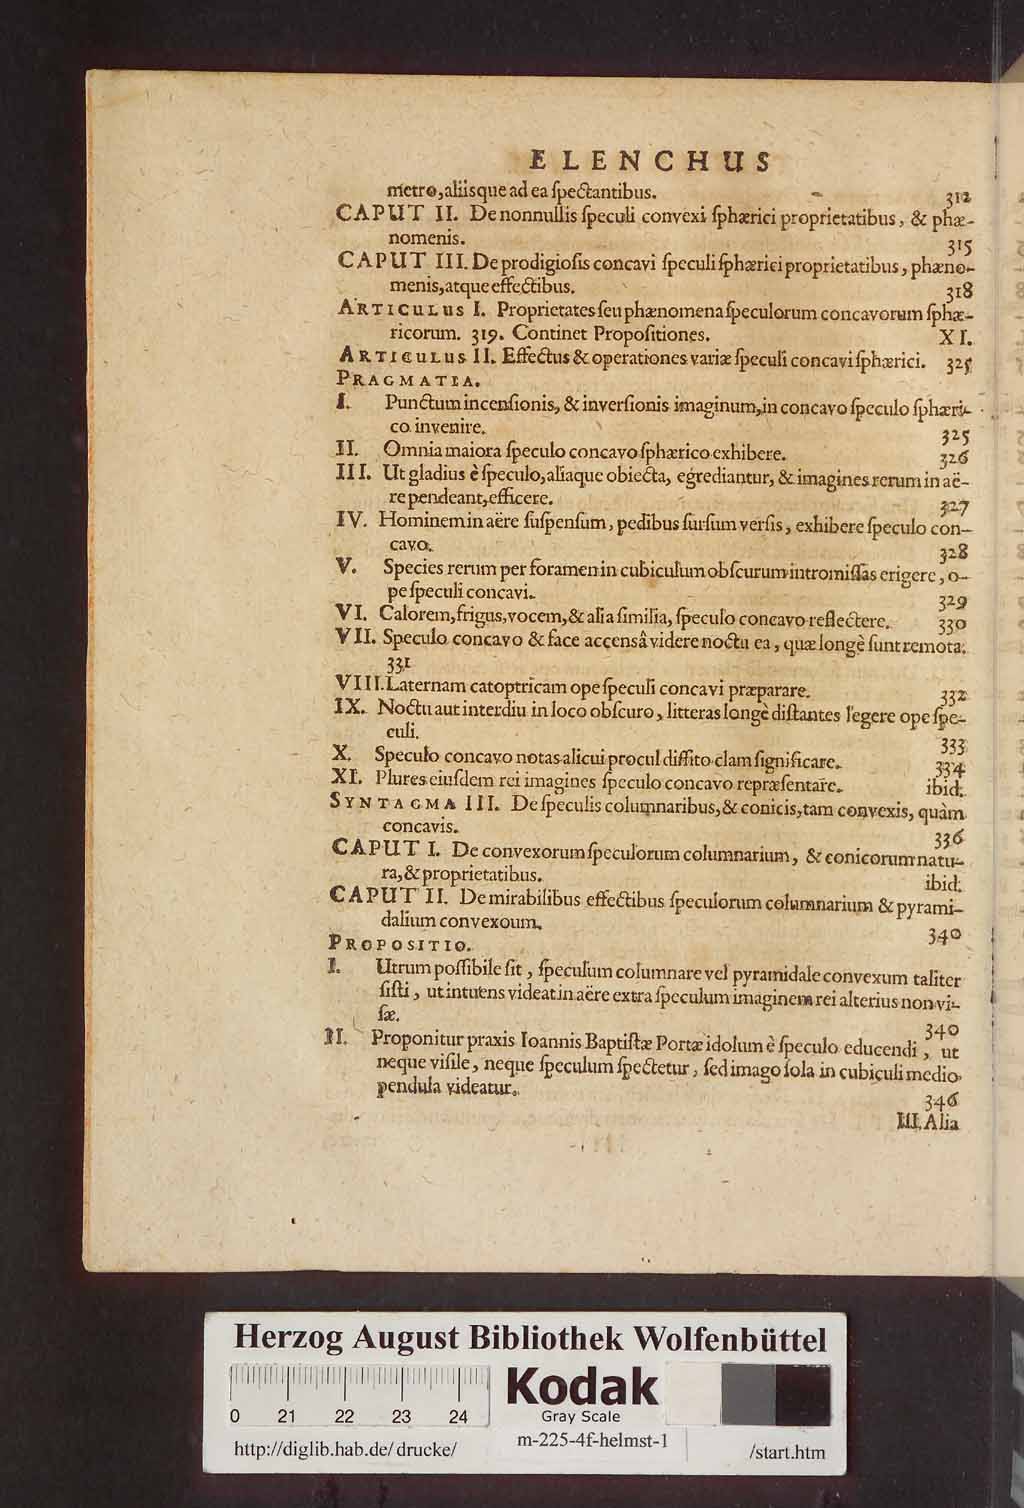 ELENCHUS
metro, aliisque ad ea ſpectantibus. 312
CAPUT II. De nonnullis ſpeculi convexi ſphærici proprietatibus, & phæ-
nomenis. 315
CAPUT III. De prodigioſis concavi ſpeculi ſphærici proprietatibus, phæno-
menis, atque effectibus. 318
ARTICULUS I. Proprietates ſeu phænomena ſpeculorum concavorum ſphæ-
ricorum. 319. Continet Propoſitiones. XI.
ARTICULUS II. Effectus & operationes variæ ſpeculi concavi ſphærici. 325
PRAGMATIA.
I. Punctum incenſionis, & inverſionis imaginum, in concavo ſpeculo ſphæri-
co invenire. 325
II. Omnia maiora ſpeculo concavo ſphærico exhibere. 326
III. Ut gladius è ſpeculo, aliaque obiecta, egrediantur, & imagines rerum in aë-
re pendeant, efficere. 327
IV. Hominem in aëre ſuſpenſum, pedibus ſurſum verſis, exhibere ſpeculo con-
cavo. 328
V. Species rerum per foramen in cubiculum obſcurum intromiſſas erigere, o-
pe ſpeculi concavi. 329
VI. Calorem, frigus, vocem, & alia ſimilia, ſpeculo concavo reflectere. 330
VII. Speculo concavo & face accensâ videre noctu ea, quæ longè ſunt remota.
331
VIII. Laternam catoptricam ope ſpeculi concavi præparare. 332
IX. Noctu aut interdiu in loco obſcuro, litteras longè diſtantes legere ope ſpe-
culi. 333
X. Speculo concavo notas alicui procul diſſito clam ſignificare. 334
XI. Plures eiuſdem rei imagines ſpeculo concavo repræſentare. ibid.
SYNTAGMA III. De ſpeculis columnaribus, & conicis, tam convexis, quàm
concavis. 336
CAPUT I. De convexorum ſpeculorum columnarium, & conicorum natu-
ra, & proprietatibus. ibid.
CAPUT II. De mirabilibus effectibus ſpeculorum columnarium & pyrami-
dalium convexoum. 340
PROPOSITIO.
I. Utrum poſſibile ſit, ſpeculum columnare vel pyramidale convexum taliter
ſiſti, ut intuens videat in aëre extra ſpeculum imaginem rei alterius non vi-
ſæ. 340
II. Proponitur praxis Ioannis Baptiſtæ Portæ idolum è ſpeculo educendi, ut
neque viſile, neque ſpeculum ſpectetur, ſed imago ſola in cubiculi medio
pendula videatur. 346
III. Alia
Herzog August Bibliothek Wolfenbüttel
0 21 22 23 24
Kodak
Gray Scale
http://diglib.hab.de/drucke/ m-225-4f-helmst-1 /start.htm